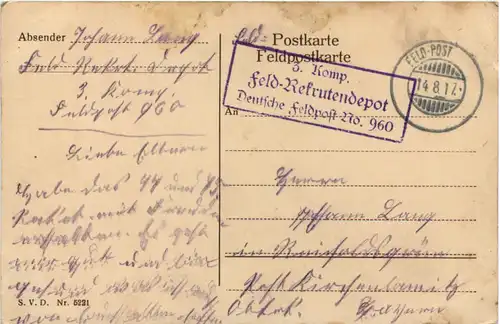 Absender Johann Lang
Feld-Rekrt. Depot
3. Komp.
Feldpost 960
Liebe Eltern
Habe das 44 und 45
Paket mit Freuden
erhalten. Es geht
mir gut und bin
gesund
von
S. V. D. Nr. 5221
Feld- Postkarte
Feldpostkarte
3. Komp.
Feld-Rekrutendepot
Deutsche Feldpost No. 960
FELD-POST
14.8.17.
An
Herrn
Johann Lang
in Reicholdsgrün
Post Kirchenlamitz
Obfrk. Bayern